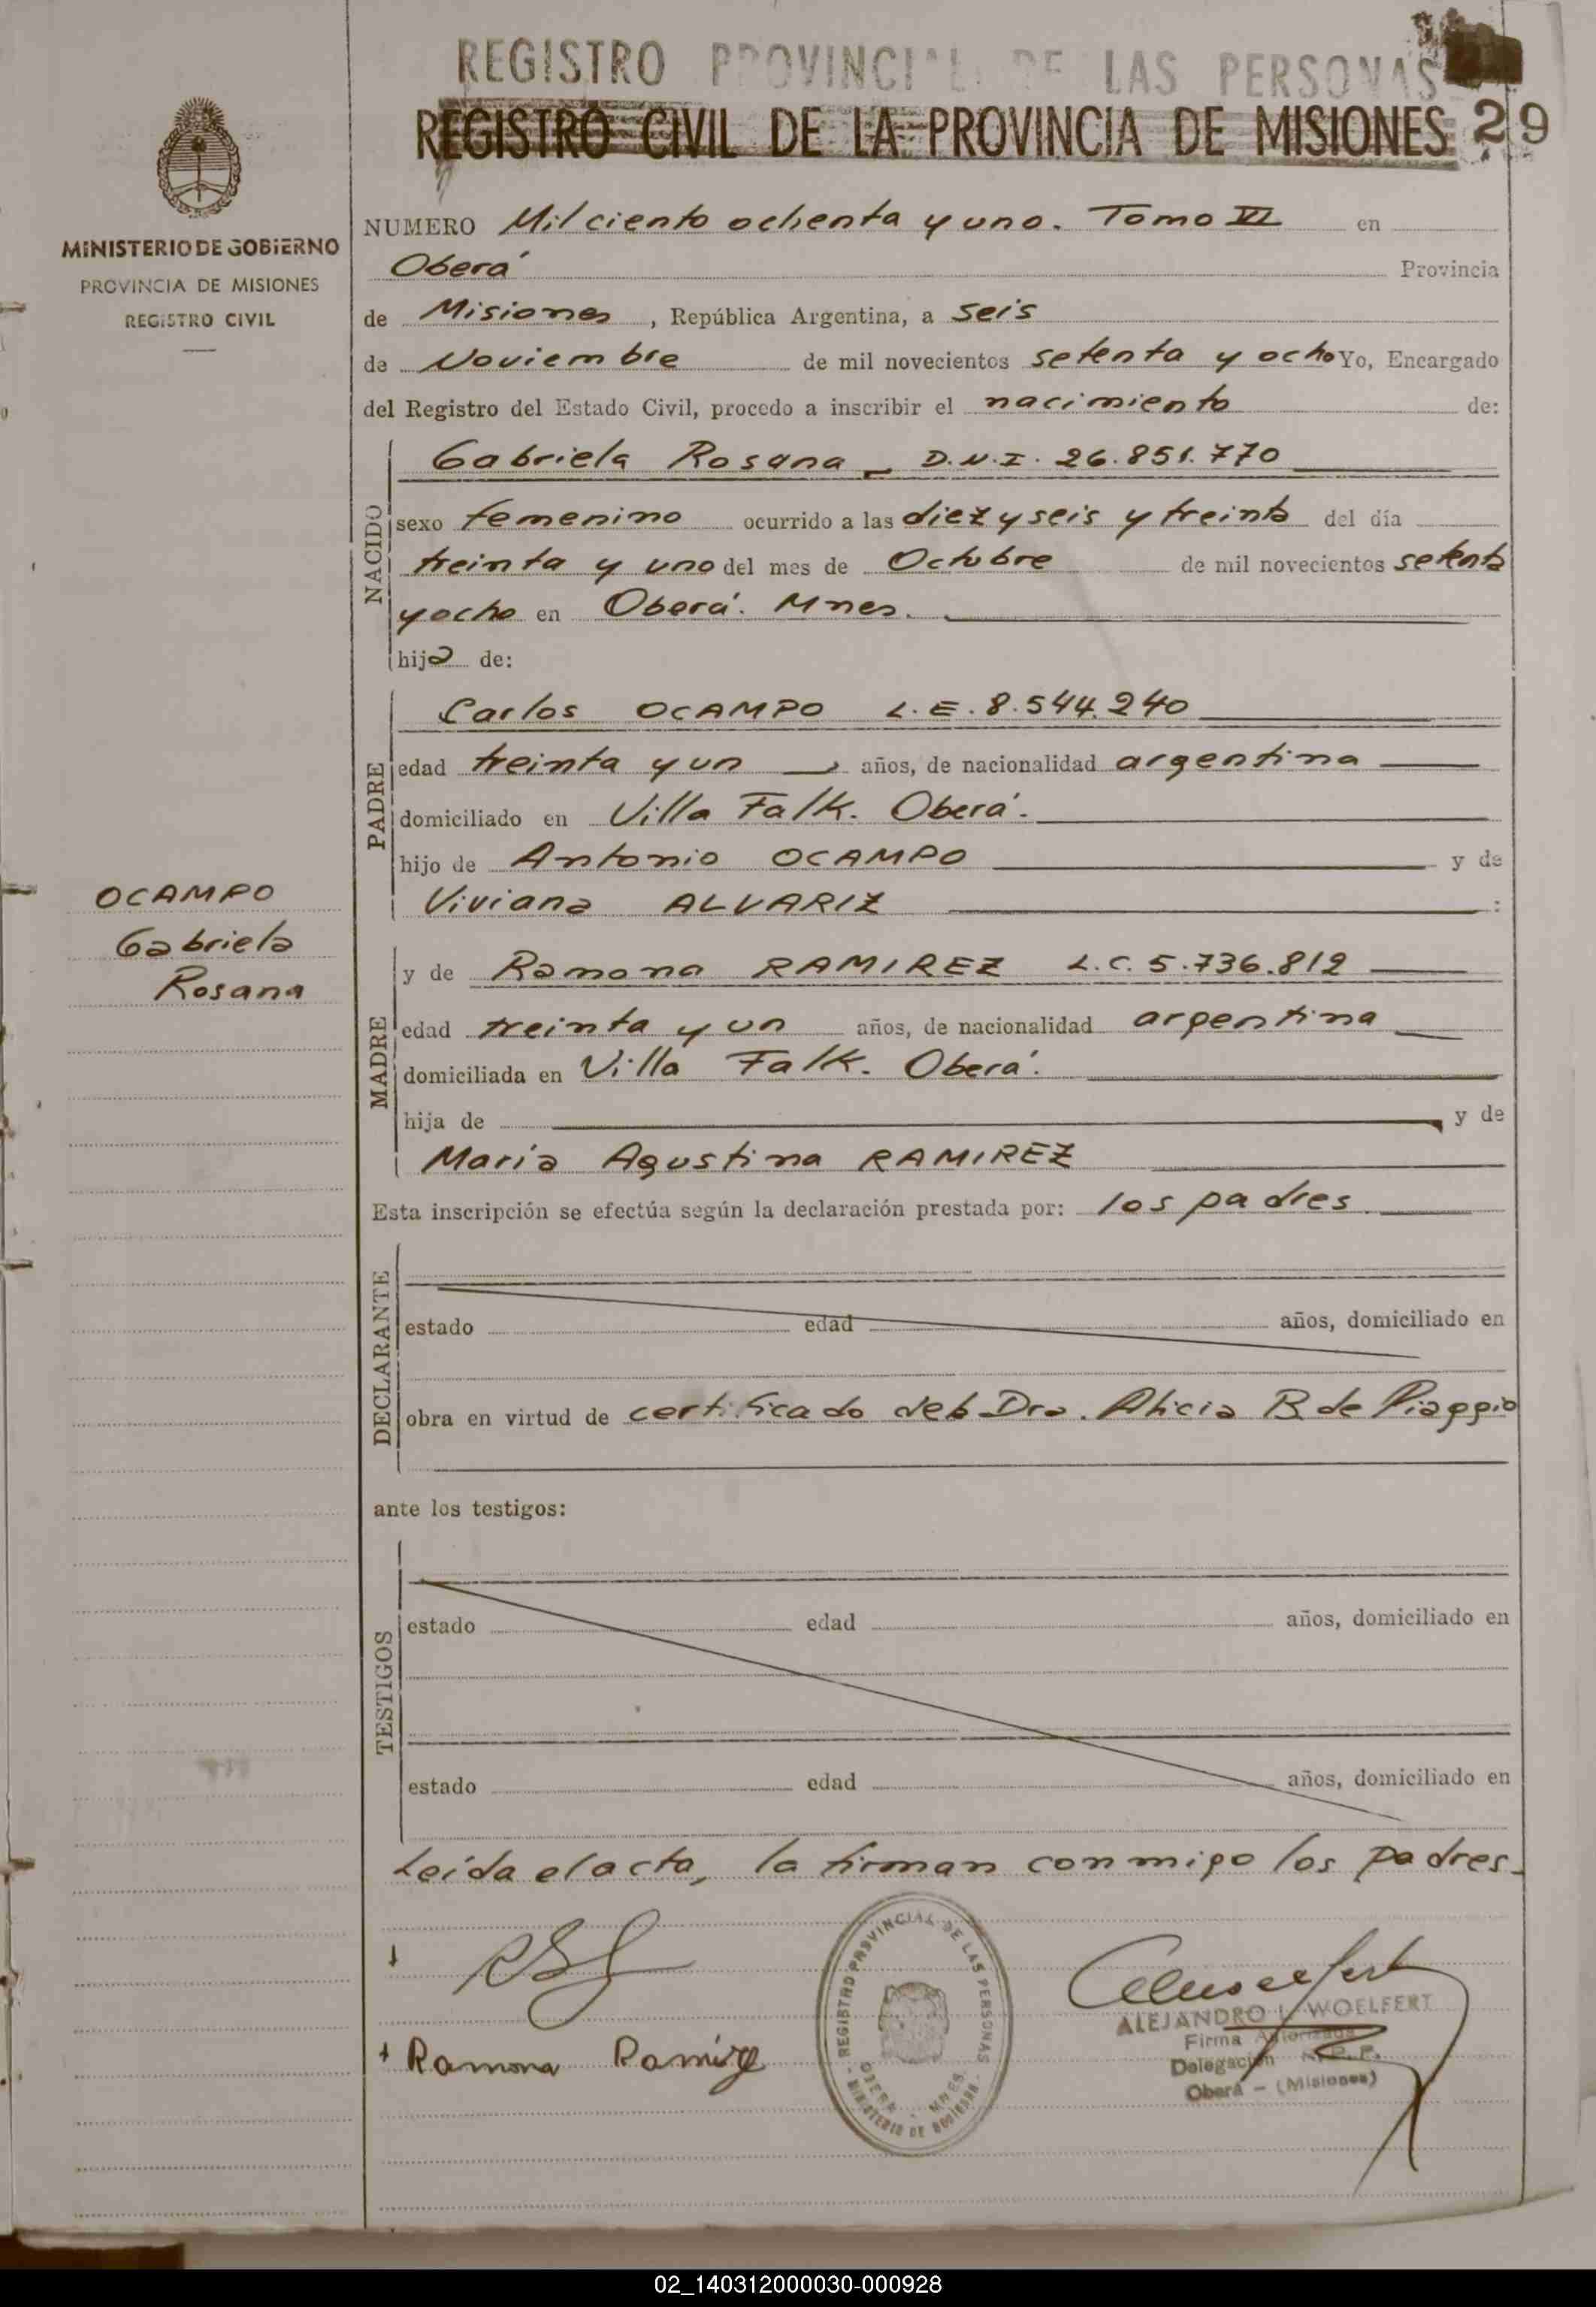 REGISTRO PROVINCIAL DE LAS PERSONAS
REGISTRO CIVIL DE LA PROVINCIA DE MISIONES 29
MINISTERIO DE GOBIERNO
PROVINCIA DE MISIONES
REGISTRO CIVIL
OCAMPO
Gabriela
Rosana
NUMERO Mil ciento ochenta y uno. Tomo VI en
Oberá Provincia
de Misiones, República Argentina, a seis
de Noviembre de mil novecientos setenta y ocho Yo, Encargado
del Registro del Estado Civil, procedo a inscribir el nacimiento de:
NACIDO
Gabriela Rosana - D.N.I. 26.851.770
sexo femenino ocurrido a las diez y seis y treinta del día
treinta y uno del mes de Octubre de mil novecientos setenta
y ocho en Oberá. Mnes.
hija de:
PADRE
Carlos OCAMPO L.E. 8.544.240
edad treinta y un años, de nacionalidad argentina
domiciliado en Villa Falk. Oberá.
hijo de Antonio OCAMPO y de
Viviana ALVARIZ :
MADRE
y de Ramona RAMIREZ L.C. 5.736.812
edad treinta y un años, de nacionalidad argentina
domiciliada en Villa Falk. Oberá.
hija de y de
Maria Agustina RAMIREZ
Esta inscripción se efectúa según la declaración prestada por: los padres.
DECLARANTE
estado edad años, domiciliado en
obra en virtud de certificado de la Dra. Alicia B. de Piaggio
ante los testigos:
TESTIGOS
estado edad años, domiciliado en
estado edad años, domiciliado en
Leída el acta, la firman conmigo los padres.
Ramona Ramirez
REGISTRO PROVINCIAL DE LAS PERSONAS
OBERA - MNES.
MINISTERIO DE GOBIERNO
ALEJANDRO L. WOELFERT
Firma Autorizada
Delegación R.P.P.
Oberá - (Misiones)
02_140312000030-000928